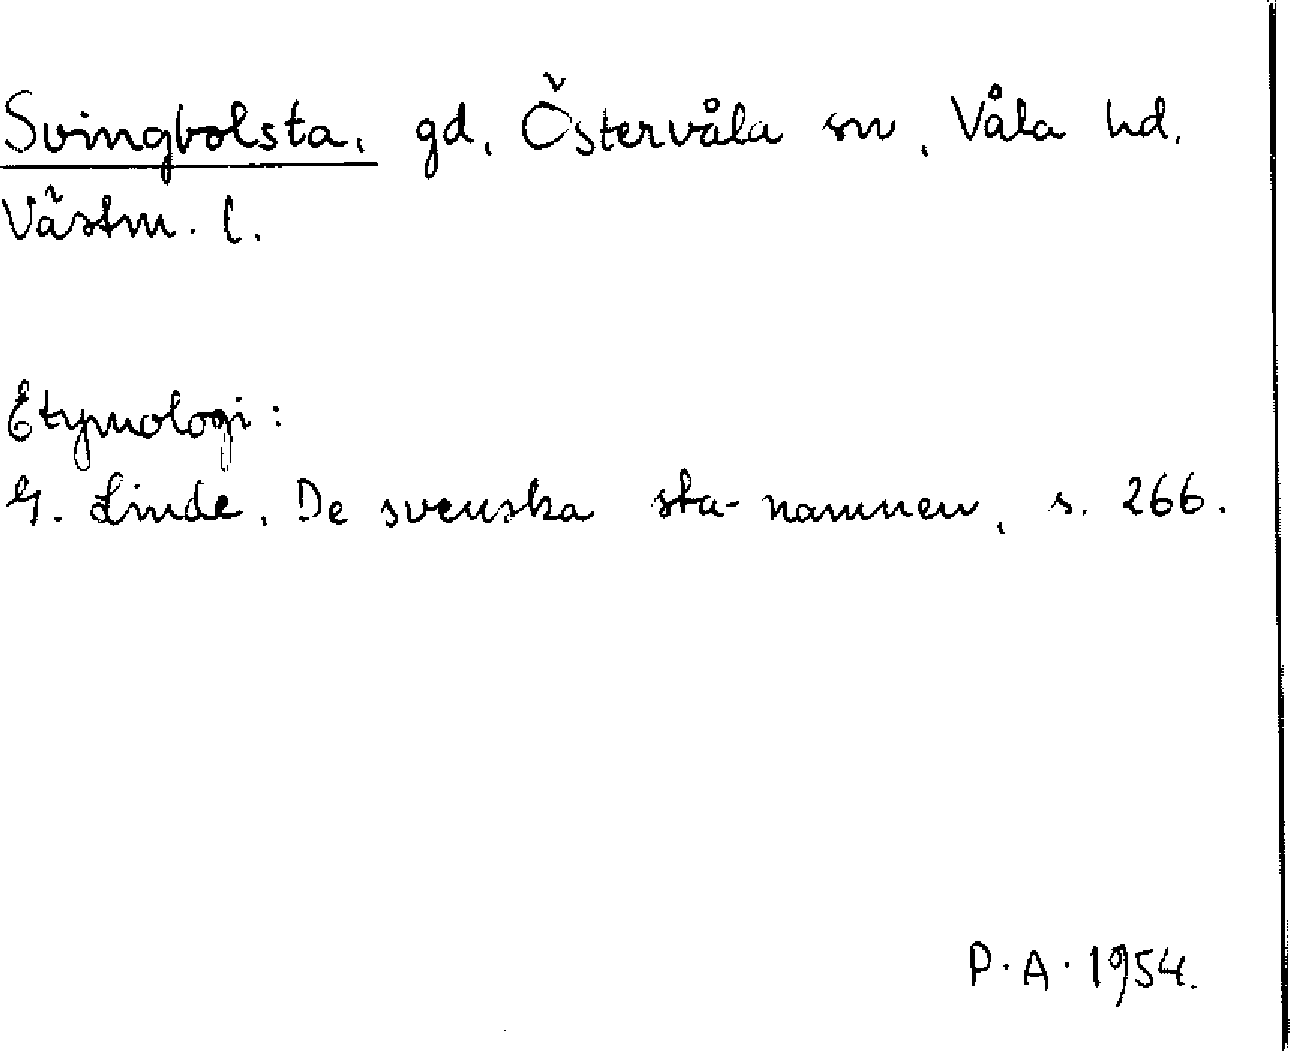 Svingbolsta, gd, Östervåla sn, Våla hd,
Västm. l.
Etymologi:
G. Linde, De svenska sta-namnen, s. 266.
P.A. 1954.